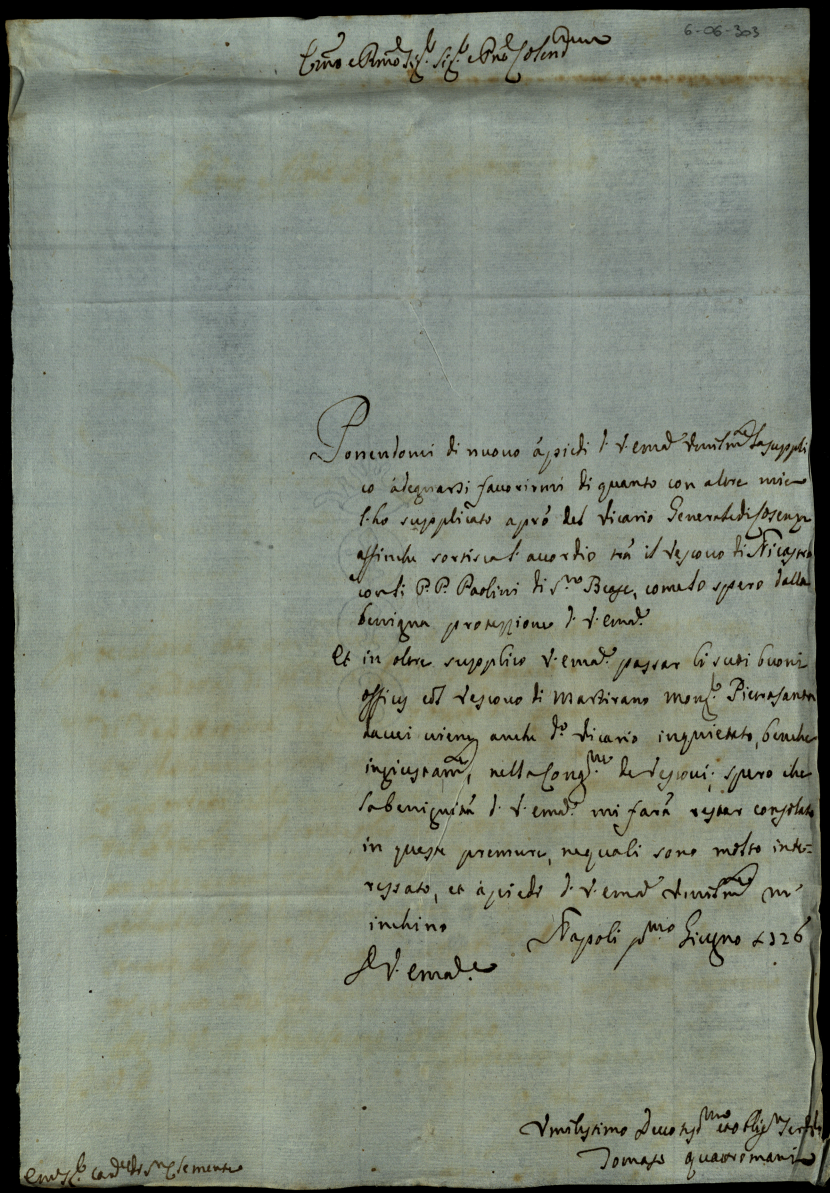 6-06-303
Em̃o e Rm̃o Sig.r Sig.r e Prõn Colend.mo
Ponendomi di nuovo à piedi d. V. Emã. Umilm.te la suppli
co à degnarsi favorirmi di quanto con altre mie
l'ho supplicato a prò del Vicario Generale di Cosenza
affinche sortisca l'accordio trà il Vescovo di Nicastro
con li P.P. Paolini di S.to Biase, come lo spero dalla
benigna protezzione d. V. Emã.
Et in oltre supplico V. Emã. passar li suoi buoni
officij col Vescovo di Martirano Mons.r Pietrasanta
da cui viene anche d.o Vicario inquietato, benche
ingiustam.te, nella Cong.ne de Vescovi; spero che
la benignità d. V. Emã. mi farà restar consolato
in queste premure, ne quali sono molto inte=
ressato, et à piedi d. V. Emã. Umilm.te m'
inchino
Napoli p.mo Giugno 1726
D. V. Emã.
Umilissimo Devotiss.mo et oblig.mo Ser.
Tomaso Quattromani
Em. Sig.r Card.le di S. Clemente